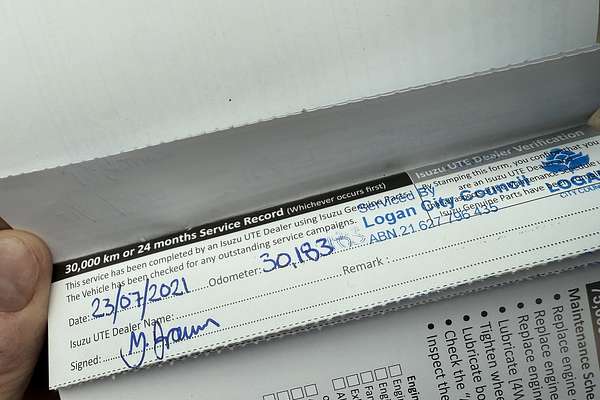 30,000 km or 24 months Service Record (Whichever occurs first)
This service has been completed by an Isuzu UTE Dealer using Isuzu Genuine Parts.
The Vehicle has been checked for any outstanding service campaigns.
Date: 23/07/2021 Odometer: 30,183
Isuzu UTE Dealer Name: Remark :
Signed:
Isuzu UTE Dealer Verification
By Stamping this form, you confirm that you
are an Isuzu UTE Dealer
Isuzu Genuine Parts have
Serviced By
Logan City Council
ABN 21 627 796 435
LOGAN
CITY COUNCIL
75,000
Maintenance Sche
• Replace engine
• Replace engine
• Replace engine
• Lubricate [4W
• Lubricate bo
• Tighten whe
• Check the
• Inspect the
Engine
Engi
Air
Fue